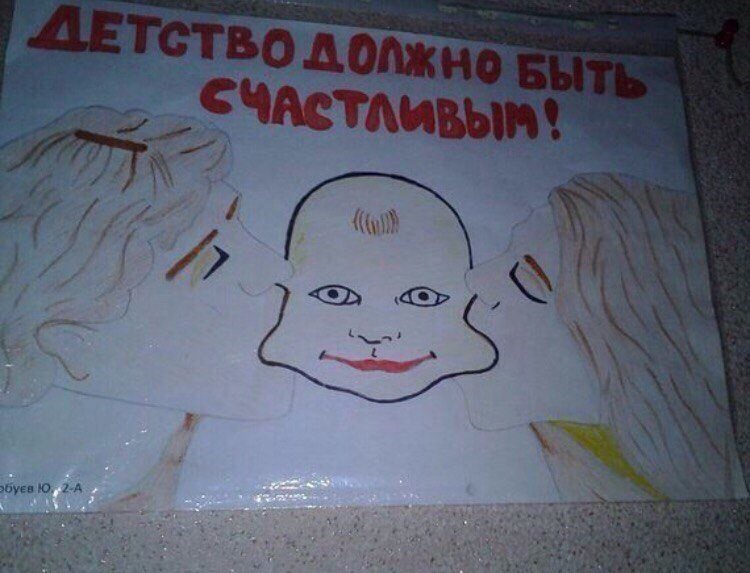 ДЕТСТВО ДОЛЖНО БЫТЬ
СЧАСТЛИВЫМ!
Ю. 2-А